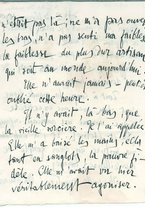 n'était pas là ; ne m'a pas ouvert
les bras, n'a pas senti ma faiblesse
la faiblesse du plus sur artisan
qui soit au monde aujourd'hui.
Elle n'aurait jamais
oublié cette heure.
Il n'y avait, là-bas, que
la vieille sorcière. Je l'ai appelée
Elle m'a baisé les mains, écla
tant en sanglots, la pauvre fi
dèle. Elle m'avait vu hier
véritablement agoniser.